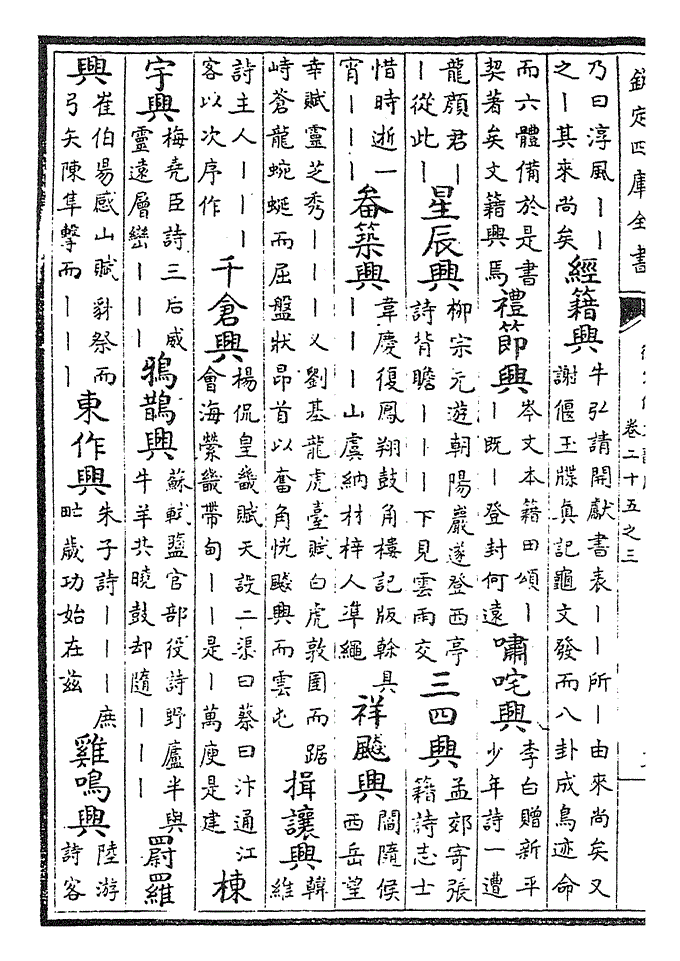 欽定四庫全書
卷二十五之三
乃曰淳風丨丨
之丨其來尚矣
經籍興
牛弘請開獻書表丨丨所丨由來尚矣又
謝偃玉牒真記龜文發而八卦成鳥迹命
而六體備於是書
契著矣文籍興焉
禮節興
岑文本籍田頌丨
丨既丨登封何遠
嘯咤興
李白贈新平
少年詩一遭
龍顏君丨
丨從此丨
星辰興
柳宗元遊朝陽巖遂登西亭
詩背瞻丨丨丨下見雲雨交
三四興
孟郊寄張
籍詩志士
惜時逝一
宵丨丨丨
畚築興
韋慶復鳳翔鼓角樓記版榦具
丨丨丨山虞納材梓人凖繩
祥飈興
閻隨侯
西岳望
幸賦靈芝秀丨丨丨又劉基龍虎臺賦白虎敦圉而踞
峙蒼龍蜿蜒而屈盤狀昂首以奮角恍飈興而雲屯
揖讓興
韓
維
詩主人丨丨丨
客以次序作
千倉興
楊侃皇畿賦天設二渠曰蔡曰汴通江
會海縈畿帶甸丨丨是丨萬庾是建
棟
宇興
梅堯臣詩三后威
靈遠層巒丨丨丨
鴉鵲興
蘇軾鹽官部役詩野廬半與
牛羊共曉鼓却隨丨丨丨
罻羅
興
崔伯昜感山賦豺祭而
弓矢陳隼擊而丨丨丨
東作興
朱子詩丨丨丨庶
甿歲功始在兹
雞鳴興
陸游
詩客